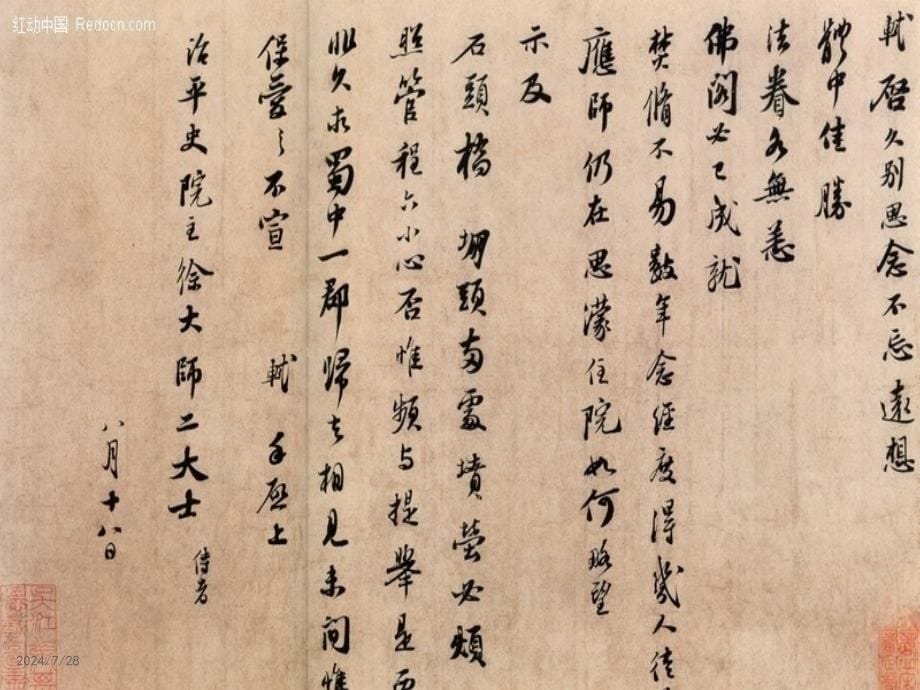 红动中国 Redocn.com
軾啓久别思念不忘遠想
體中佳勝
法眷各無恙
佛閣必已成就
焚脩不易數年念經度得幾人徒
應師仍在思濛住院如何略望
示及
石頭橋 堋頭兩處墳塋必煩
照管程六小心否惟頻与提舉是
非久求蜀中一郡歸去相見未間惟
保愛之不宣 軾 手啓上
治平史院主徐大師二大士 侍者
八月十八日
2024/7/28